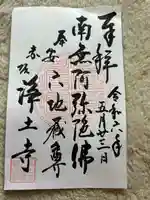 奉拝
令和六年
五月廿三日
南無阿弥陀佛
奉安 六地蔵尊
赤坂 浄土寺